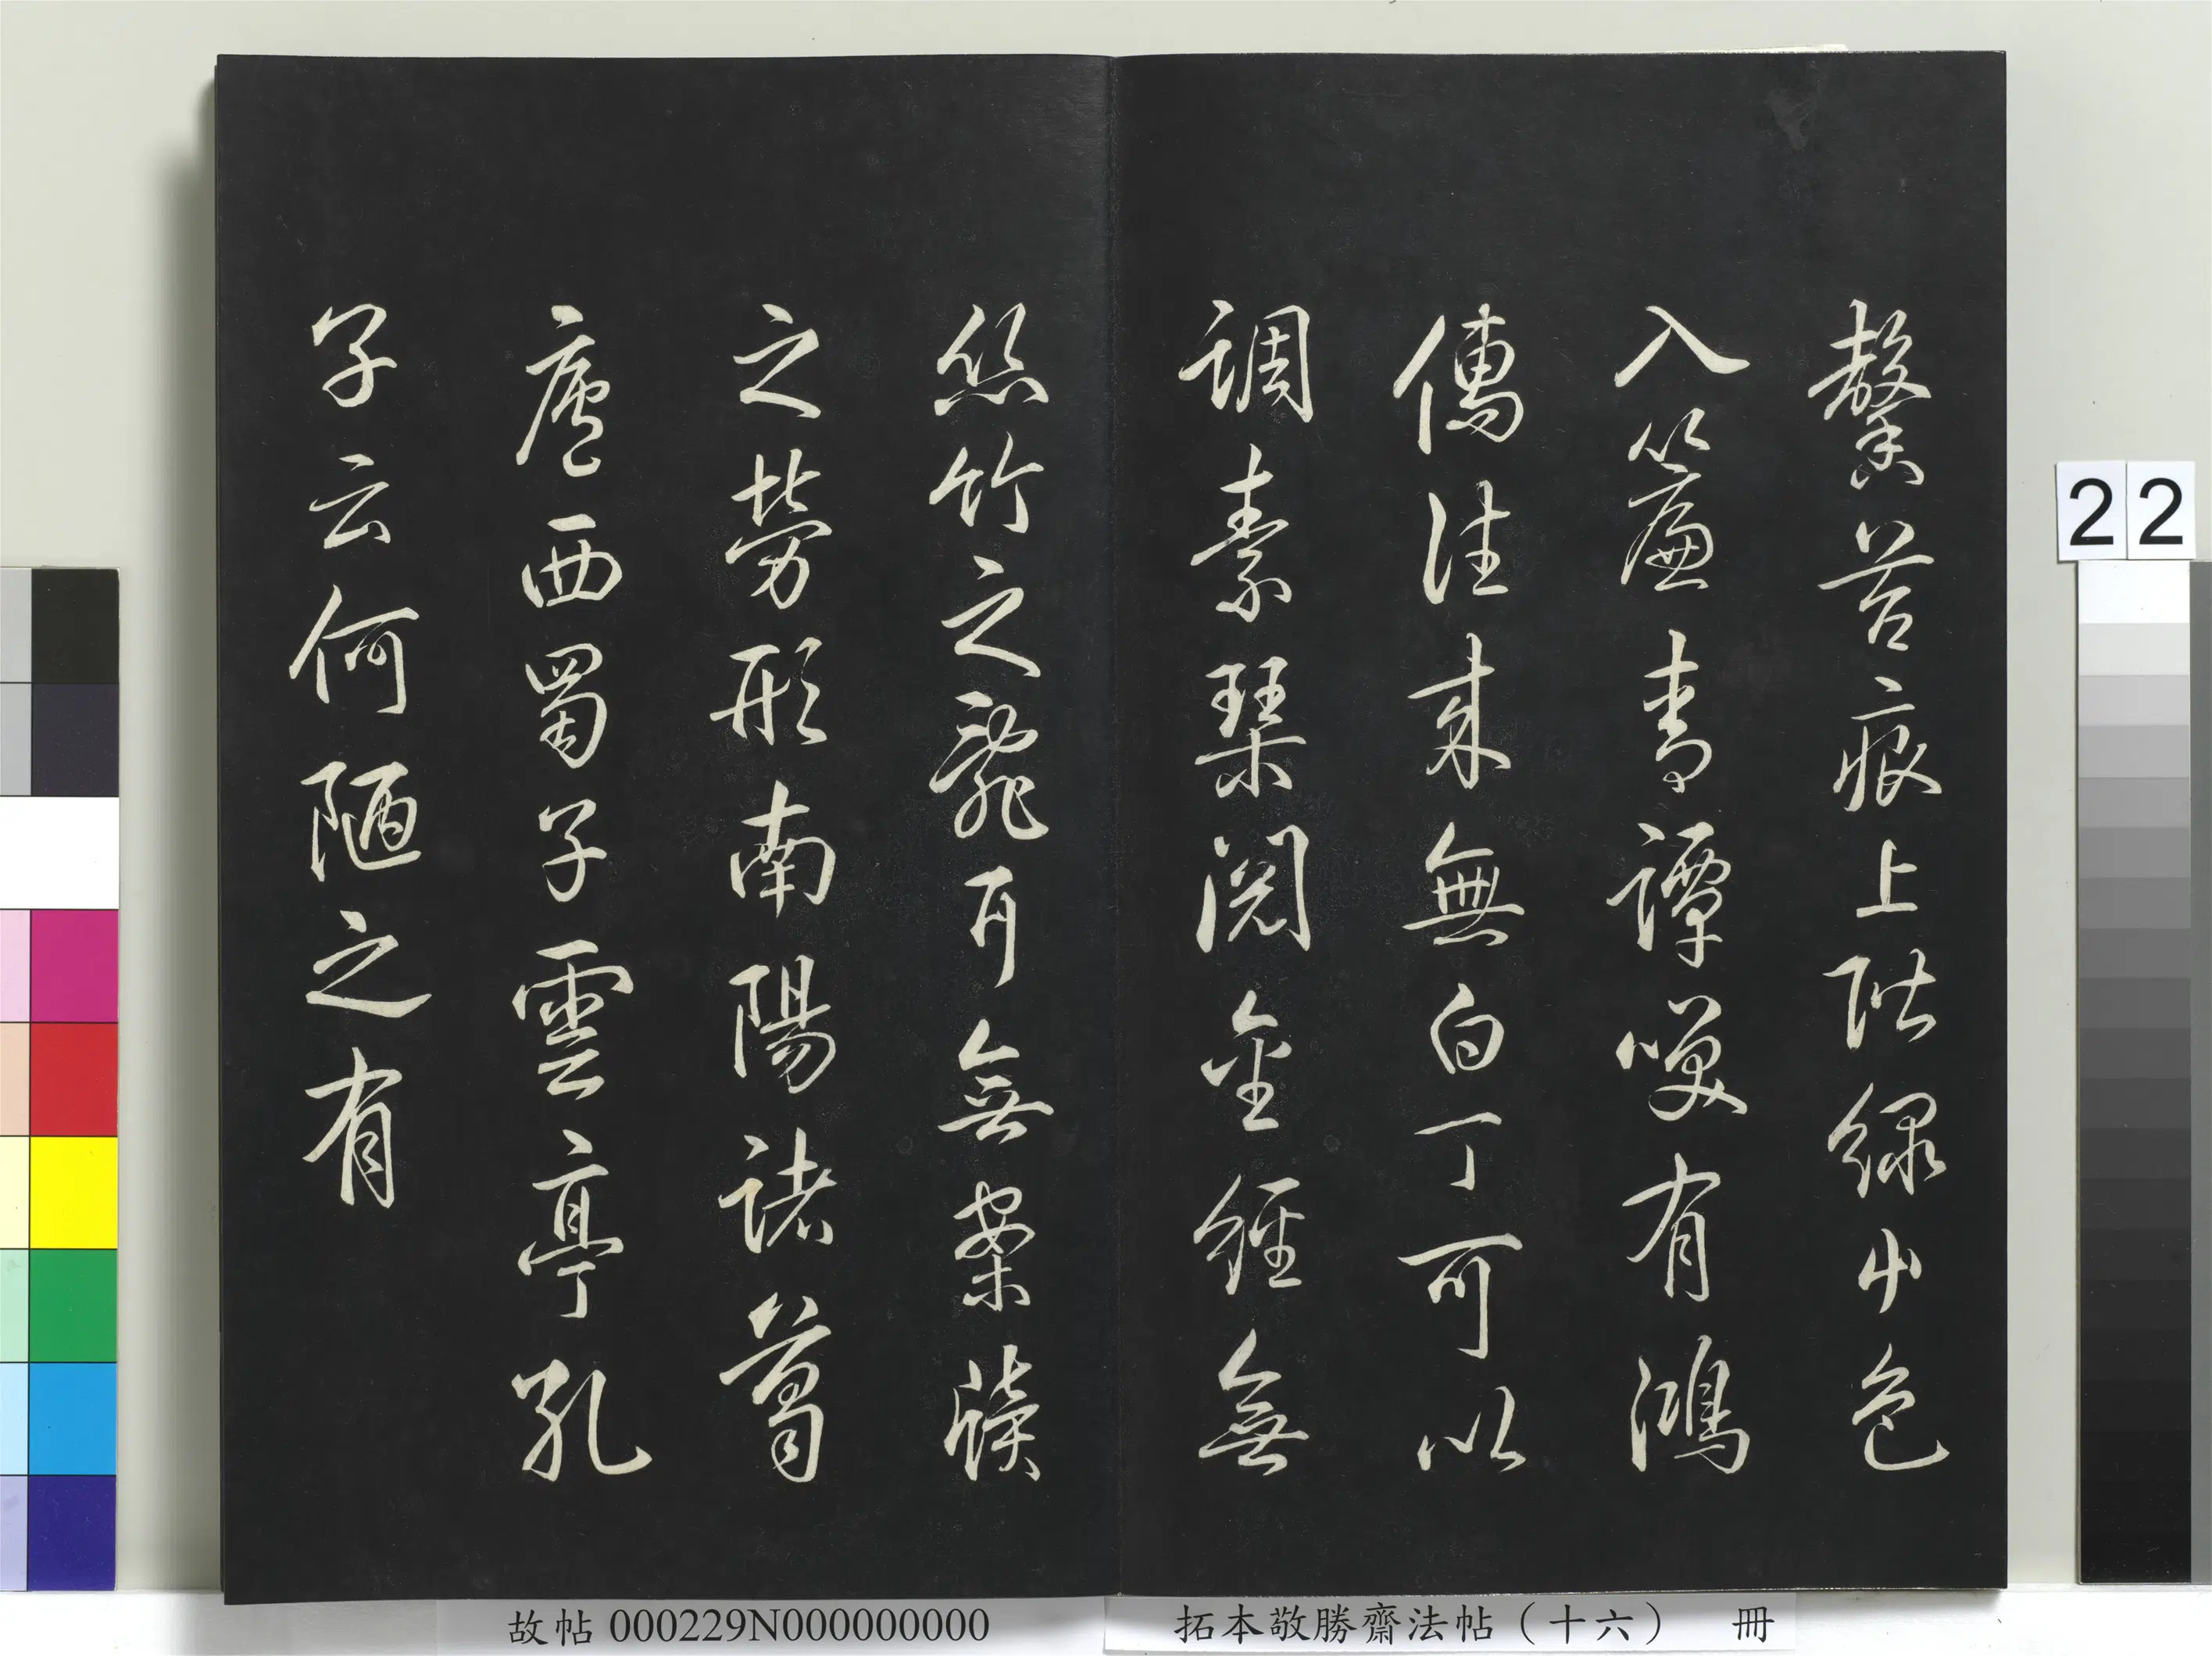 馨苔痕上階緑屮色
入簾青譚咲有鴻
儒往來無白丁可以
調素琹閱金經無
絲竹之亂耳無案牘
之勞形南陽諸葛
廬西蜀子雲亭孔
子云何陋之有
22
故帖 000229N000000000
拓本敬勝齋法帖（十六） 冊